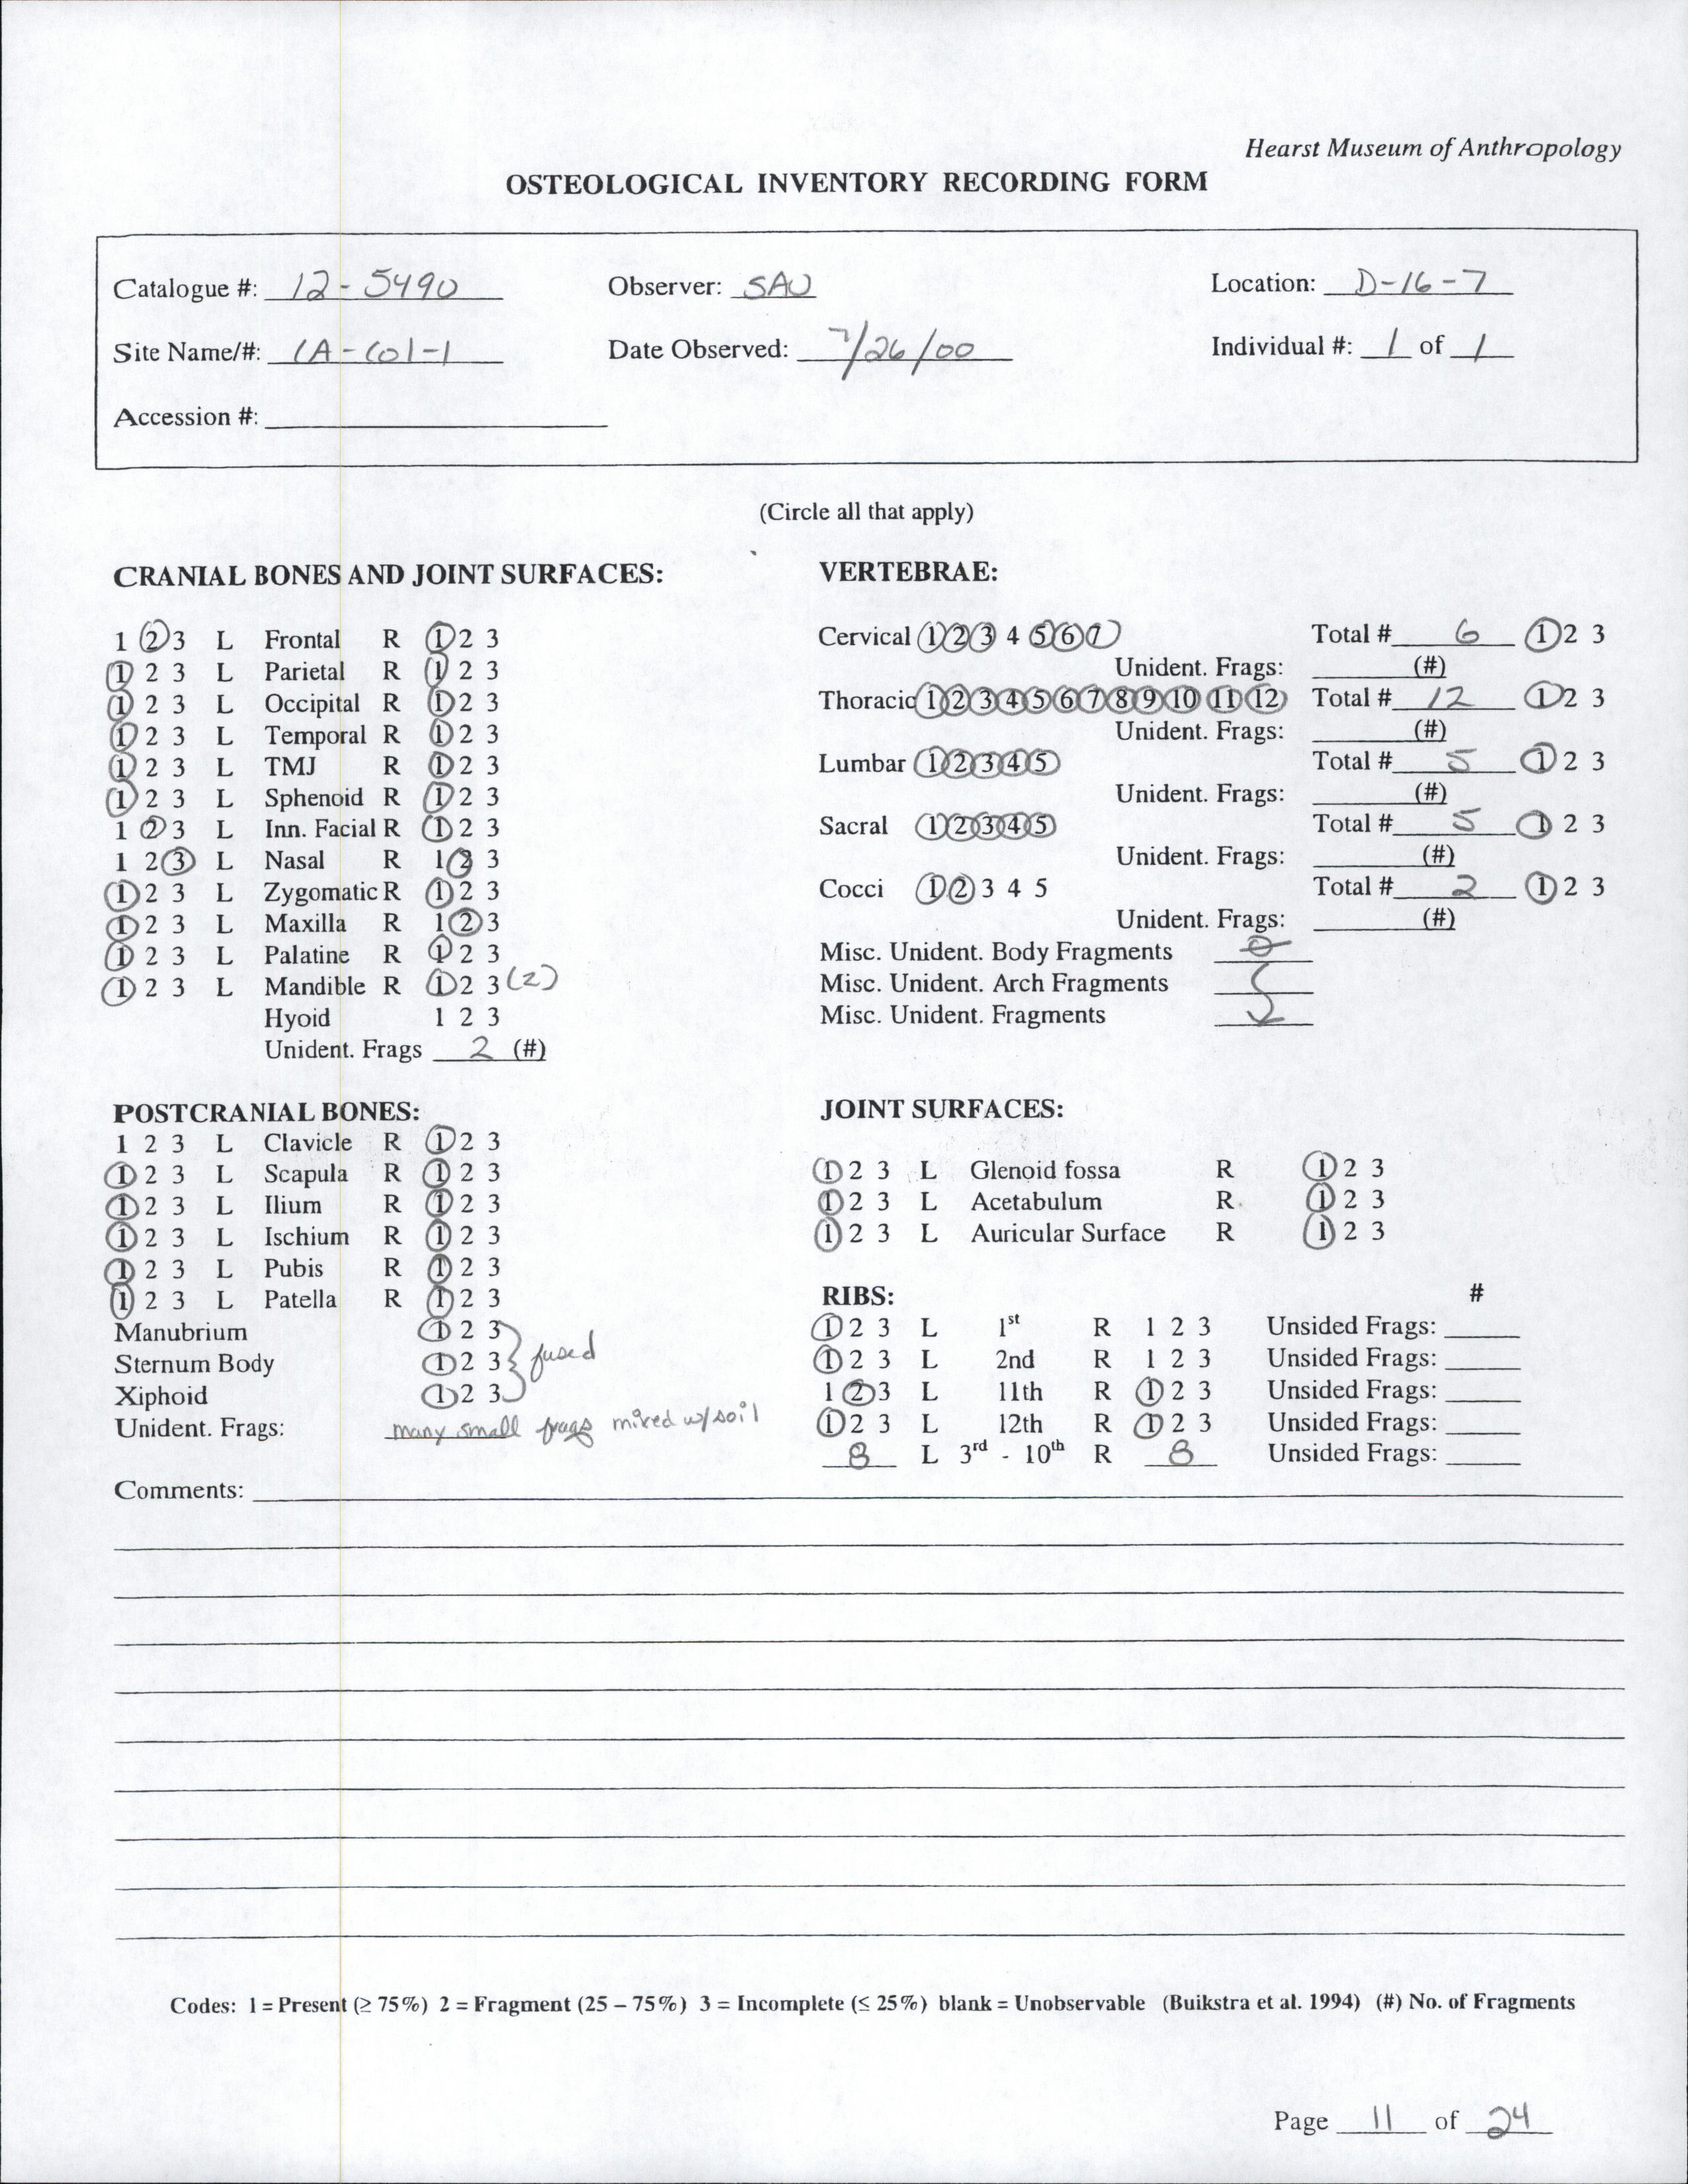 Hearst Museum of Anthropology
OSTEOLOGICAL INVENTORY RECORDING FORM
Catalogue #: 12-5490 Observer: SAU Location: D-16-7
Site Name/#: CA-Col-1 Date Observed: 7/26/00 Individual #: 1 of 1
Accession #:
(Circle all that apply)
CRANIAL BONES AND JOINT SURFACES:
1 2 3 L Frontal R 1 2 3
1 2 3 L Parietal R 1 2 3
1 2 3 L Occipital R 1 2 3
1 2 3 L Temporal R 1 2 3
1 2 3 L TMJ R 1 2 3
1 2 3 L Sphenoid R 1 2 3
1 2 3 L Inn. Facial R 1 2 3
1 2 3 L Nasal R 1 2 3
1 2 3 L Zygomatic R 1 2 3
1 2 3 L Maxilla R 1 2 3
1 2 3 L Palatine R 1 2 3
1 2 3 L Mandible R 1 2 3 (2)
Hyoid 1 2 3
Unident. Frags 2 (#)
VERTEBRAE:
Cervical 1 2 3 4 5 6 7 Total # 6 1 2 3
Unident. Frags: (#)
Thoracic 1 2 3 4 5 6 7 8 9 10 11 12 Total # 12 1 2 3
Unident. Frags: (#)
Lumbar 1 2 3 4 5 Total # 5 1 2 3
Unident. Frags: (#)
Sacral 1 2 3 4 5 Total # 5 1 2 3
Unident. Frags: (#)
Cocci 1 2 3 4 5 Total # 2 1 2 3
Unident. Frags: (#)
Misc. Unident. Body Fragments 0
Misc. Unident. Arch Fragments
Misc. Unident. Fragments
POSTCRANIAL BONES:
1 2 3 L Clavicle R 1 2 3
1 2 3 L Scapula R 1 2 3
1 2 3 L Ilium R 1 2 3
1 2 3 L Ischium R 1 2 3
1 2 3 L Pubis R 1 2 3
1 2 3 L Patella R 1 2 3
Manubrium 1 2 3
Sternum Body 1 2 3 fused
Xiphoid 1 2 3
Unident. Frags: many small frags mixed w/soil
JOINT SURFACES:
1 2 3 L Glenoid fossa R 1 2 3
1 2 3 L Acetabulum R 1 2 3
1 2 3 L Auricular Surface R 1 2 3
RIBS: #
1 2 3 L 1st R 1 2 3 Unsided Frags:
1 2 3 L 2nd R 1 2 3 Unsided Frags:
1 2 3 L 11th R 1 2 3 Unsided Frags:
1 2 3 L 12th R 1 2 3 Unsided Frags:
8 L 3rd - 10th R 8 Unsided Frags:
Comments:
Codes: 1 = Present (≥ 75%) 2 = Fragment (25 – 75%) 3 = Incomplete (≤ 25%) blank = Unobservable (Buikstra et al. 1994) (#) No. of Fragments
Page 11 of 24